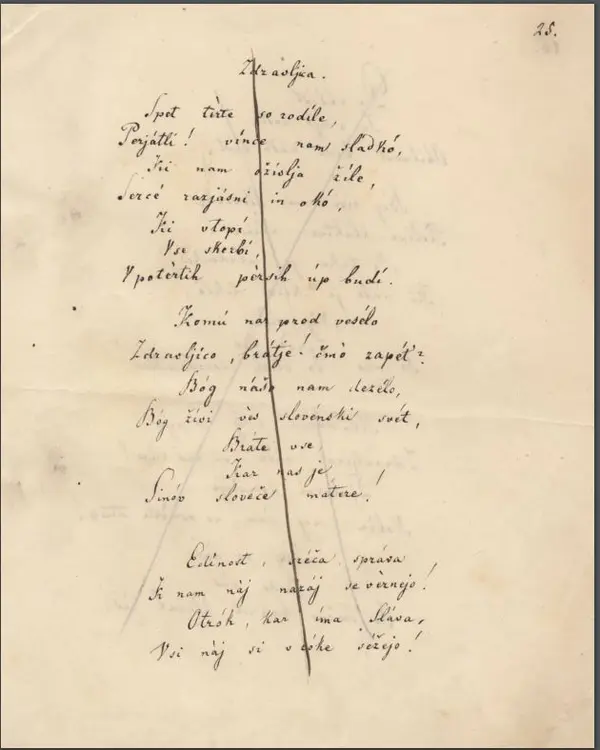 25.
Zdravljica.
Spet tèrte so rodile,
Perjátli! vínce nam sladkó,
Ki nam oživlja žíle,
Sercé razjásni in okó,
Ki vtopí
Vse skerbí,
V potèrtih pèrsih úp budí.
Komú nar pred vesélo
Zdravljico, brátje! čmò zapét'?
Bóg nášo nam dezélo,
Bóg žívi vès slovénski svét,
Bráte vse,
Kar nas je
Sinóv slovéče matere!
Edínost, sréča, správa
K nam nàj nazáj se vèrnejo!
Otrók, kar íma Sláva,
Vsi nàj si v róke séžejo!